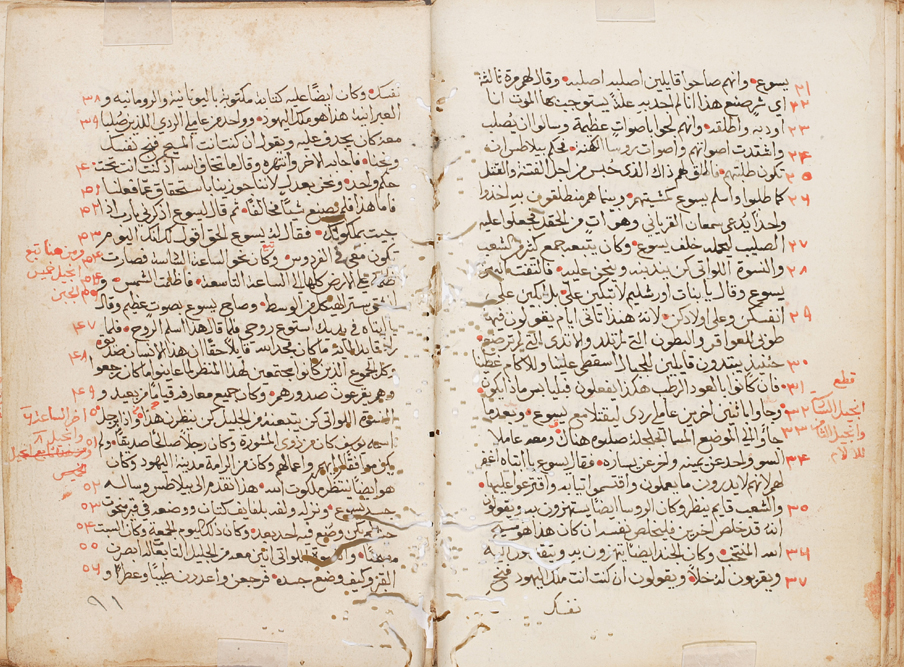 يسوع وانهم صاحوا قايلين اصلبه اصلبه وقال لهم مرة ثالثة
٢١
اي شر صنع هذا انا لم اجد به علة يستوجب بها الموت انا
٢٢
اودبه واطلقه وانهم لجوا باصوات عظيمة وسالوا ان يصلب
٢٣
واشتدت اصواتهم واصوات روسا الكهنة فحكم بيلاطس ان
٢٤
تكون طلبتهم فاطلق لهم ذاك الذي حبس من اجل الفتنة والقتل
٢٥
كما طلبوا واسلم يسوع كمشيتهم وبينا هم منطلقون به اخذوا
٢٦
واحدا يدعى سمعان القرياني وهو ات من الحقل فجعلوا عليه
الصليب ليحمله خلف يسوع وكان يتبعه جمع كثير من الشعب
٢٧
والنسوة اللواتي كن يندبنه وينحن عليه فالتفت اليهن
٢٨
يسوع وقال يا بنات اورشليم لا تبكين علي بل ابكين على
انفسكن وعلى اولادكن لانه هوذا تاتي ايام يقولون فيها
٢٩
طوبى للعواقر والبطون التي لم تلد والاثدي التي لم ترضع
حينيذ يبتدون قايلين للجبال اسقطي علينا وللاكام غطينا
٣٠
فان كانوا بالعود الرطب هكذا يفعلون فباليابس ماذا يكون
٣١
وجاوا باثنين اخرين عاملي ردي ليقتلا مع يسوع وبعدما
٣٢
جاوا الى الموضع المسما الجمجمة صلبوه هناك ومعه عاملا
٣٣
السو واحد عن يمينه واخر عن يساره فقال يسوع يا ابتاه اغفر
٣٤
لهم لانهم لا يدرون ما يعملون واقتسموا ثيابه واقترعوا عليها
والشعب قايم ينظر وكان الروسا ايضا يستهزون به ويقولون
٣٥
انه قد خلص اخرين فليخلص نفسه ان كان هذا هو مسيح
الله المنتخب وكان الجند ايضا يتهزون به ويتقدمون اليه
٣٦
ويقربون له خلا ويقولون ان كنت انت ملك اليهود فنجي
٣٧
نفسك
قطع
انجيل السادسة
وانجيل الثامن
للالام
نفسك وكان ايضا عليه كتابة مكتوبة باليونانية والرومانية و
٣٨
العبرانية هذا هو ملك اليهود وواحد من عاملي الردي اللذين صلبا
٣٩
معه كان يجدف عليه ويقول ان كنت انت المسيح فنج نفسك
ونجنا فاجابه الاخر وانتهره وقال اما تخاف الله اذ كنت انت تحت
٤٠
حكم واحد ونحن بعدل لاننا جوزينا باستحقاق عما فعلنا
٤١
فاما هذا فلم يصنع شيا مخالفا ثم قال ليسوع اذكرني يا رب اذا
٤٢
جيت بملكوتك فقال له يسوع الحق اقول لك انك اليوم
٤٣
تكون معي في الفردوس وكان نحو الساعة السادسة فصارت
٤٤
ظلمة على الارض كلها الى الساعة التاسعة فاظلمت الشمس و
٤٥
انشق ستر الهيكل من الوسط وصاح يسوع بصوت عظيم وقال
يا ابتاه في يديك استودع روحي فلما قال هذا اسلم الروح فلما
٤٧
راى قايد المائة ما كان مجد الله قايلا حقا ان هذا الانسان صديق
وكل الجموع الذين كانوا مجتمعين لهذا المنظر لما عاينوا ما كان رجعوا
٤٨
وهم يقرعون صدورهم وكان جميع معارفه قياما من بعيد و
٤٩
النسوة اللواتي كن يتبعنه من الجليل كن ينظرن هذا واذا رجل
٥٠
اسمه يوسف كان من ذوي المشورة وكان رجلا صالحا صديقا ولم
٥١
يكن موافقا لرايهم واعمالهم وكان من الرامة مدينة اليهود وكان
هو ايضا ينتظر ملكوت الله هذا تقدم الى بيلاطس وساله
٥٢
جسد يسوع ونزله ولفه بلفايف كتان ووضعه في قبر منحوت
٥٣
حيث لم يكن وضع فيه احد بعد وكان ذاك اليوم الجمعة وكان السبت
٥٤
مصبحا والنسوة اللواتي اتين معه من الجليل اتبعن ابصرن
٥٥
القبر وكيف وضع جسده فرجعن واعددن طيبا وعطرا و
٥٦
ومن هنا تبع
انجيل خميس
الجبن
اخر الساعة ٩
وانجيل ٨
٩١